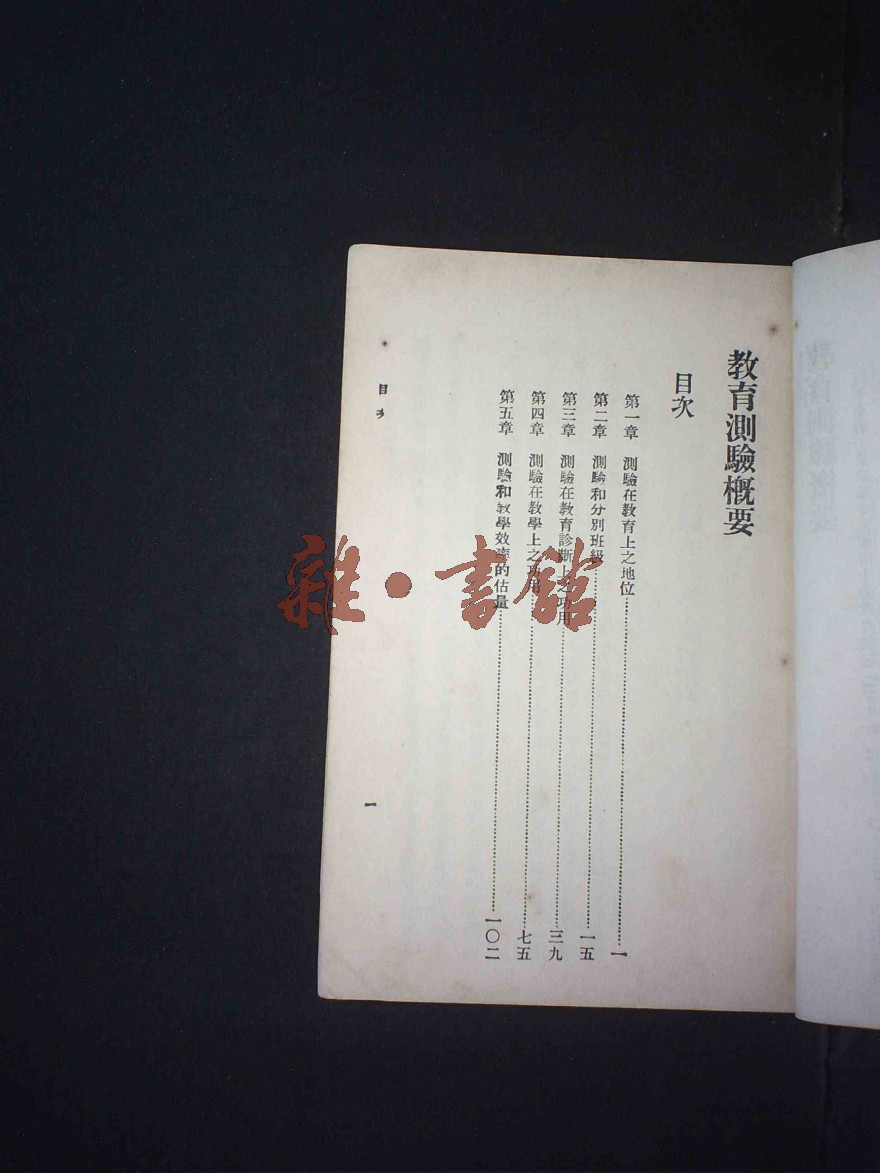 教育測驗概要
目次
第一章 測驗在教育上之地位……一
第二章 測驗和分別班級……一五
第三章 測驗在教育診斷上之功用……三九
第四章 測驗在教學上之功用……七五
第五章 測驗和教學效率的估量……一〇二
目次
一
雜·書館